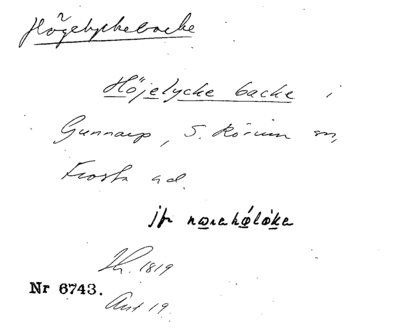 Högelyckebacke
Höjelycke backe i
Gunnarp, S. Rörum sn,
Frosta hd.
jfr norahöloka
Th. 1819
Nr 6743.
Ant 19